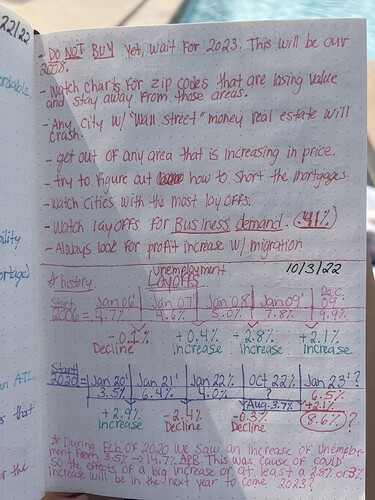 22/22
- DO NOT BUY yet, wait for 2023. This will be our
2008.
- Watch charts for zip codes that are losing value
and stay away from those areas.
- Any city w/ "Wall street" money real estate will
crash.
- get out of any area that is increasing in price.
- try to figure out how to short the mortgages.
- Watch cities with the most layoffs.
- Watch layoffs for Business demand. .41%
- Always look for profit increase w/ migration
* history Unemployment 10/3/22
LAYOFFS
Start 2006 = Jan 06' 4.7% Jan 07' 4.6% Jan 08' 5.0% Jan 09' 7.8% Dec 09' 9.9%
-0.1% Decline +0.4% increase +2.8% increase +2.1% increase
Start 2020 = Jan 20' 3.5% Jan 21' 6.4% Jan 22% 4.0% Oct 22% Jan 23'?
Aug. 3.7% 6.5%
+2.1%
8.6%?
+2.9% increase -2.4% Decline -0.3% Decline
* During Feb of 2020 we saw an increase of unemploy-
ment from 3.5% → 14.7% APR. This was cause of covid
so the effects of a big increase of at least a 2.8% or 3%
increase will be in the next year to come 2023?
rdable
bility
ortaged
n ATL
s that
r the